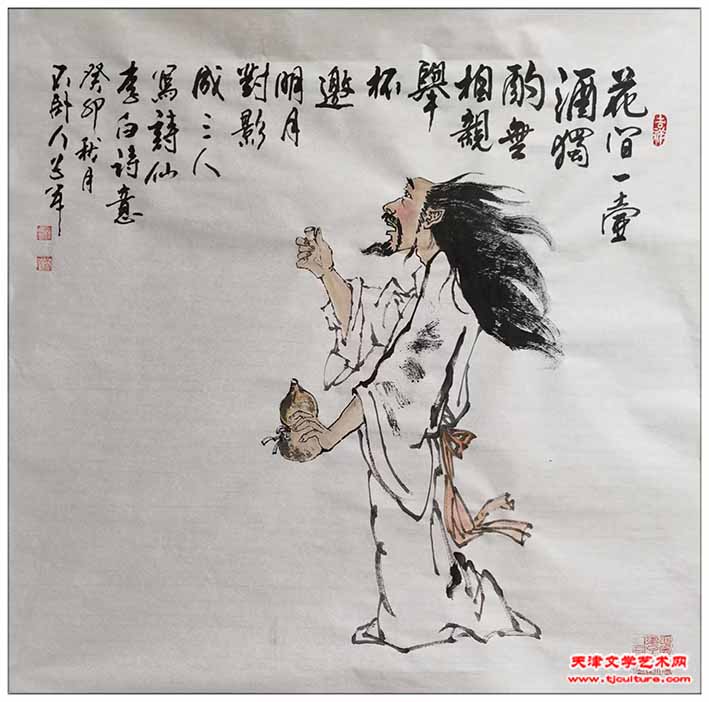 花间一壶
酒獨
酌無
相親
舉
杯
邀
明月
對影
成三人
寫詩仙
李白诗意
癸卯秋月
天津文学艺术网
www.tjculture.com